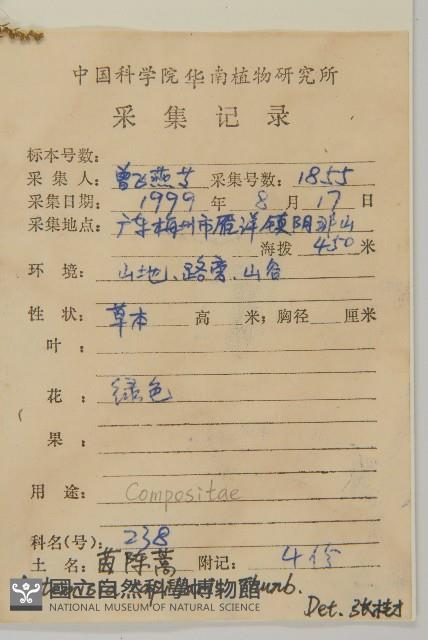 中国科学院华南植物研究所
采集记录
标本号数:
采集人: 曾飞燕等 采集号数: 1855
采集日期: 1999 年 8 月 17 日
采集地点: 广东梅州市雁洋镇阴那山
海拨 450 米
环境: 山地、路旁、山谷
性状: 草本 高 米; 胸径 厘米
叶:
花: 绿色
果:
用途: Compositae
科名(号): 238
土名: 茵陈蒿 附记: 4份
國立自然科學博物館
NATIONAL MUSEUM OF NATURAL SCIENCE
Thunb.
Det. 张桂才